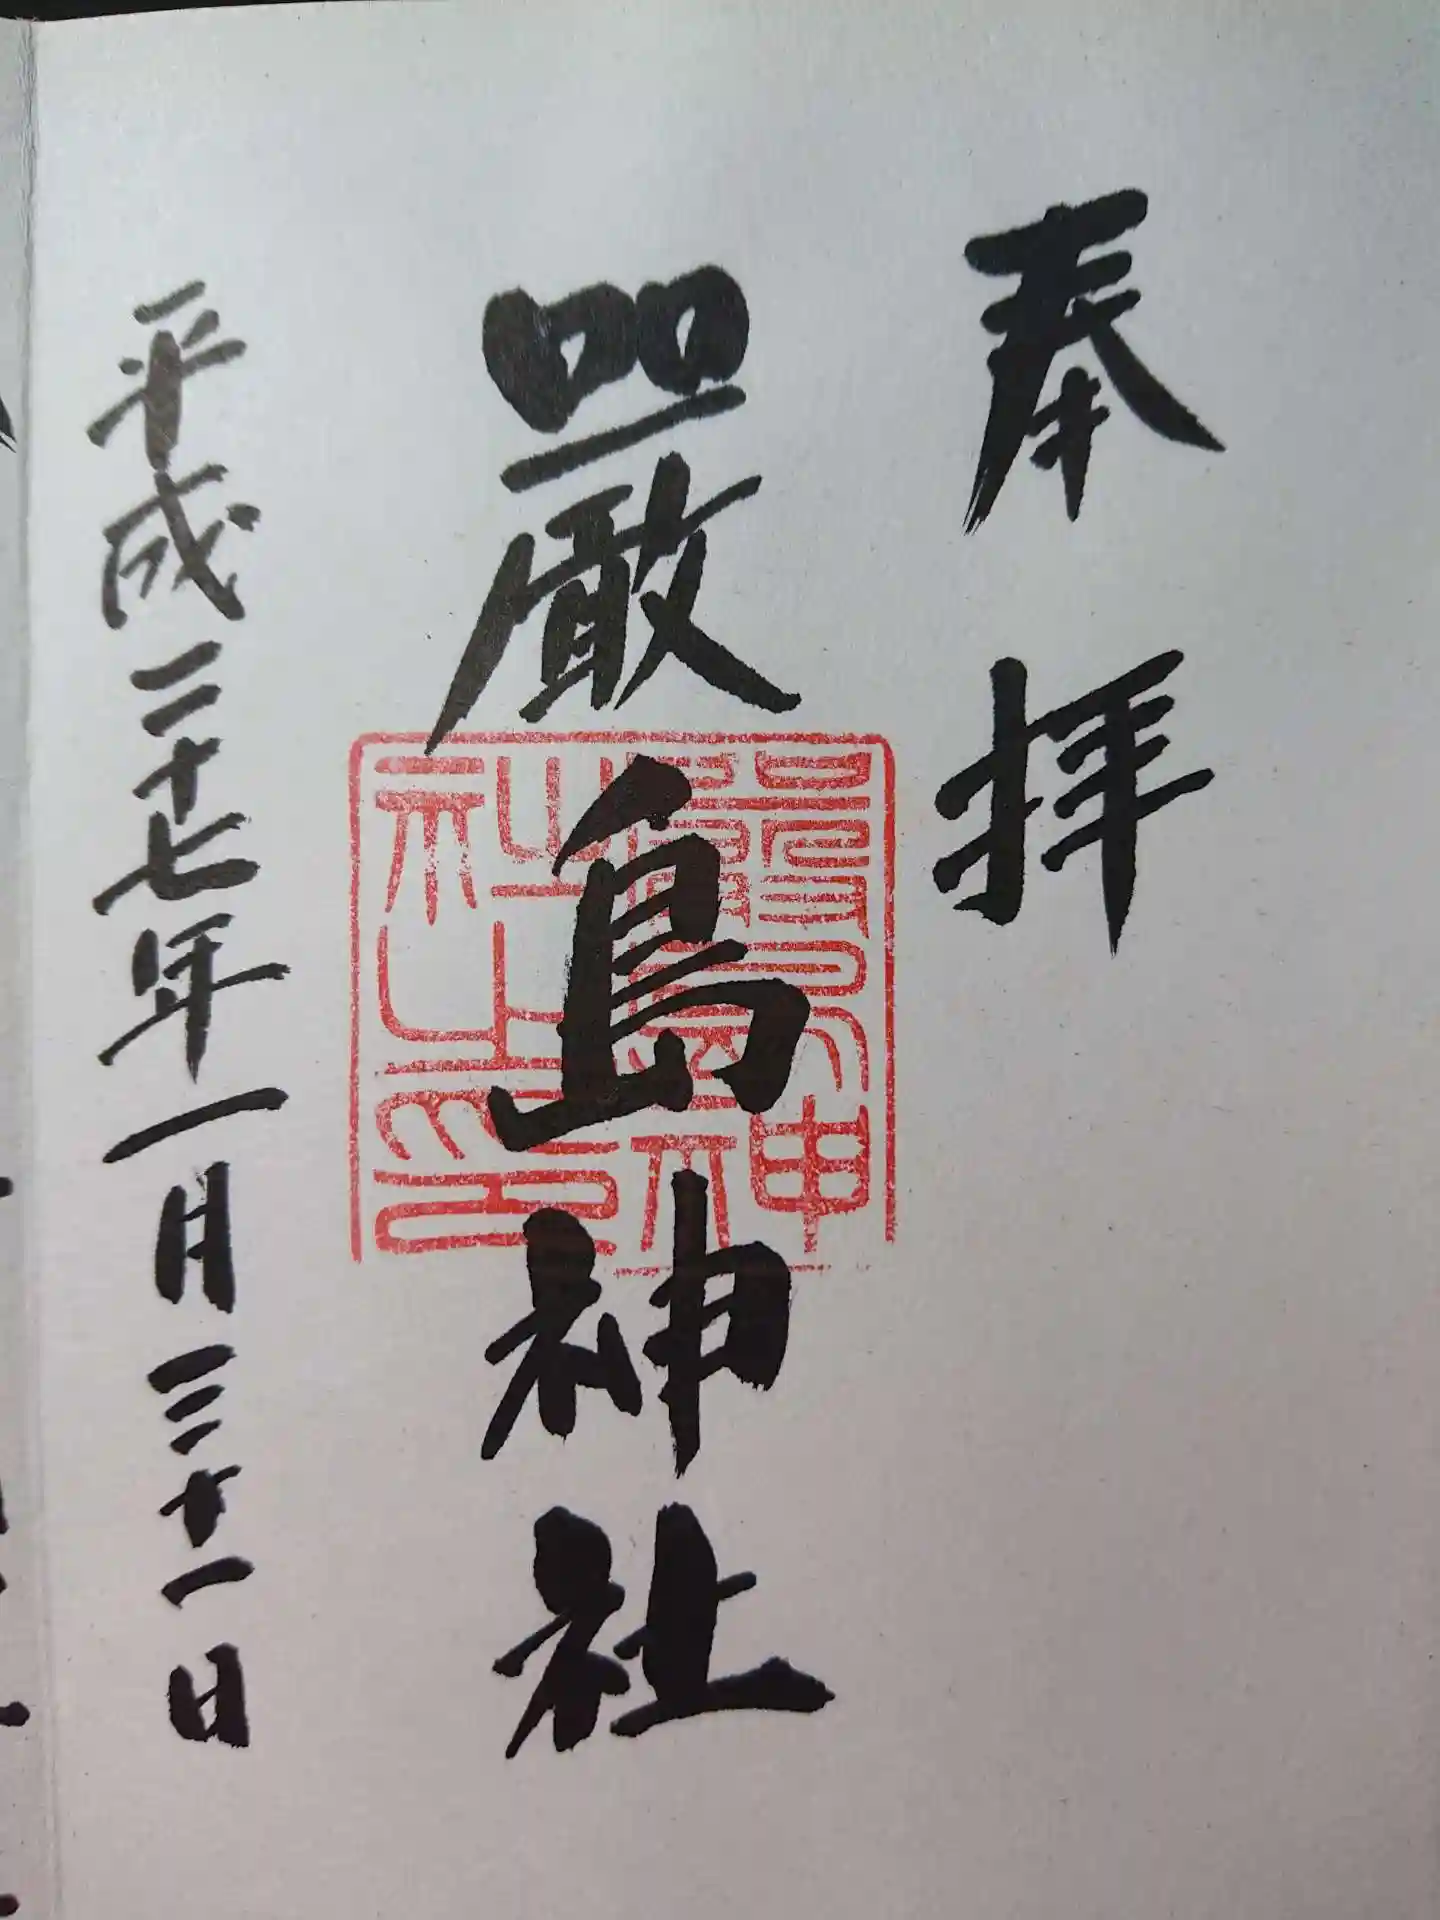 奉拝
嚴島神社
平成二十七年一月三十一日